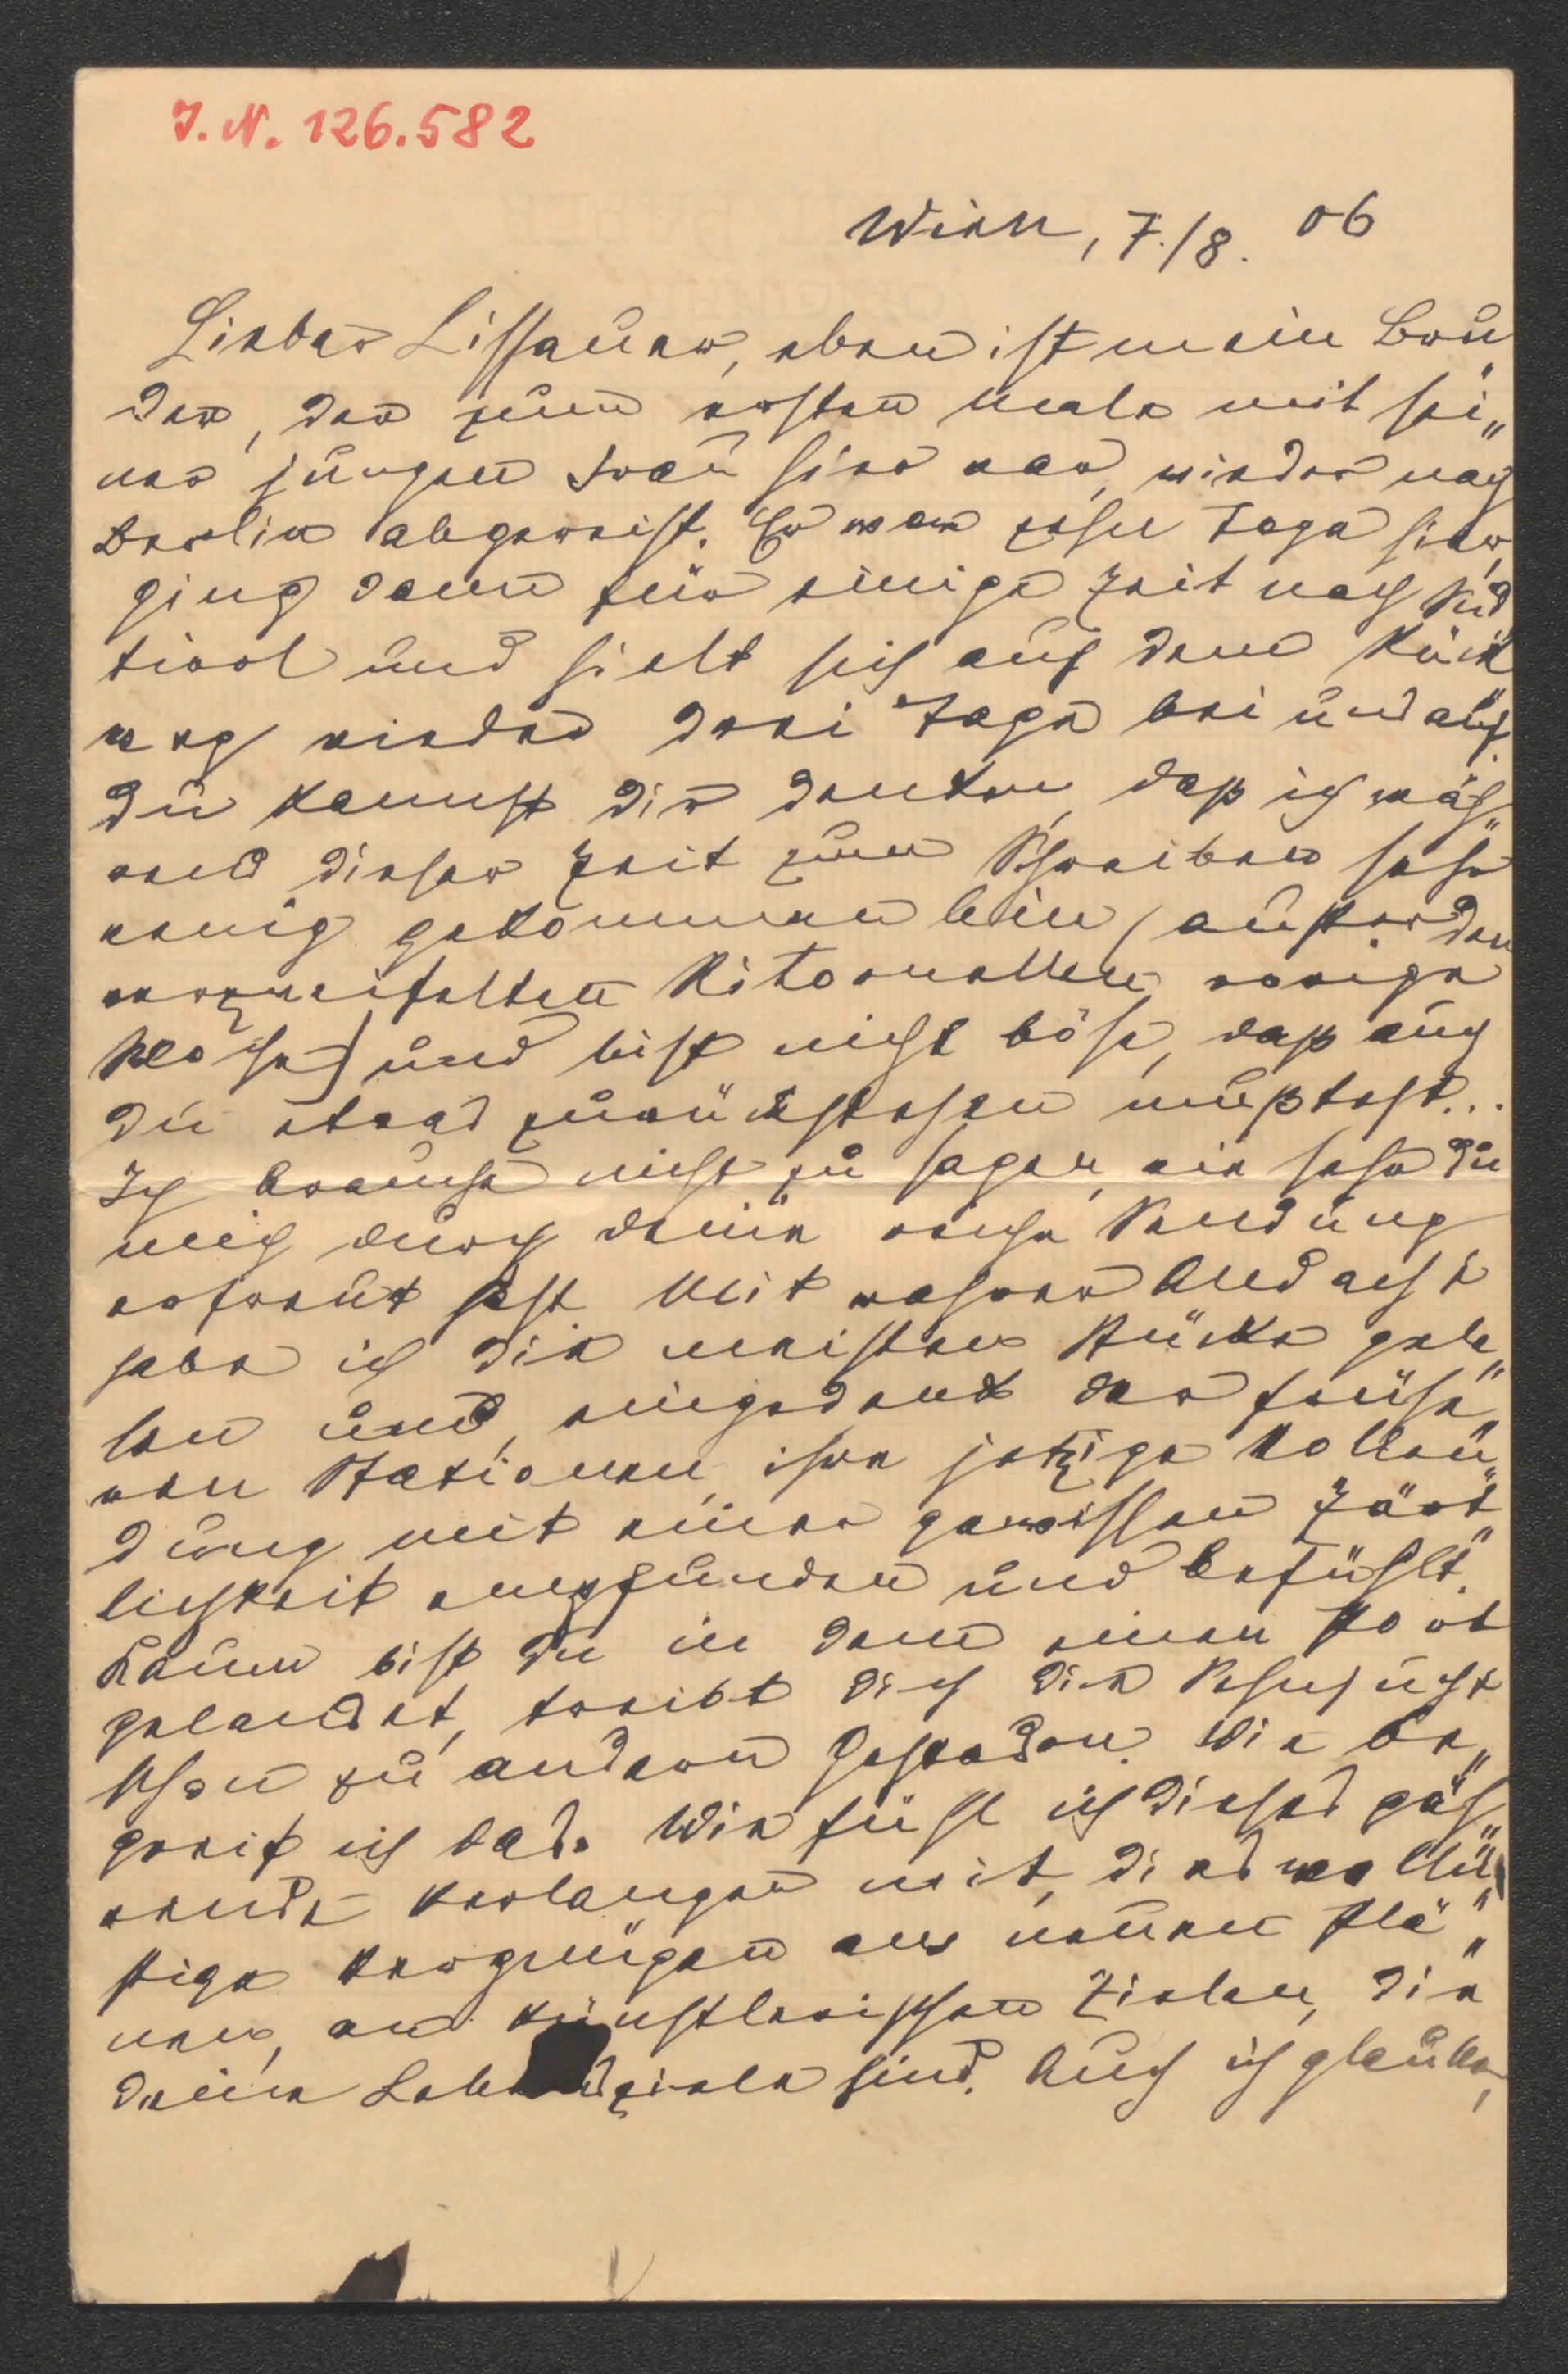 J. N. 126.582
Wien, 7./8. 06
Lieber Lissauer, eben ist mein Bru„
der, der zum ersten Male mit sei„
ner jungen Frau hier war, wieder nach
Berlin abgereist. Er war zehn Tage hier,
ging dann für einige Zeit nach Süd„
tirol und hielt sich auf dem Rück„
weg wieder drei Tage bei uns auf.
Du kannst dir denken, daß ich wäh„
rend dieser Zeit zum Schreiben sehr
wenig gekommen bin (außer den
verzweifelten Ritornellen voriger
Woche) und bist nicht böse, daß auch
du etwas zurückstehen mußtest...
Ich brauche nicht zu sagen, wie sehr du
mich durch deine reiche Sendung
erfreut hast. Mit wahrer Andacht
habe ich die meisten Stücke gele„
sen und, eingedenk der frühe„
ren Stationen, ihre jetzige Vollen„
dung mit einer gewissen Zärt„
lichkeit empfunden und befühlt.
Kaum bist du in dem einen Port
gelandet, treibt dich die Sehnsucht
schon zu andern Gestaden. Wie be„
greif ich das. Wie fühl ich dieses gäh„
rende Verlangen mit, dies wollü„
stige Vergnügen an neuen Plä„
nen, an künstlerischen Zielen, die
deine Lebensziele sind. Auch ich glaube,